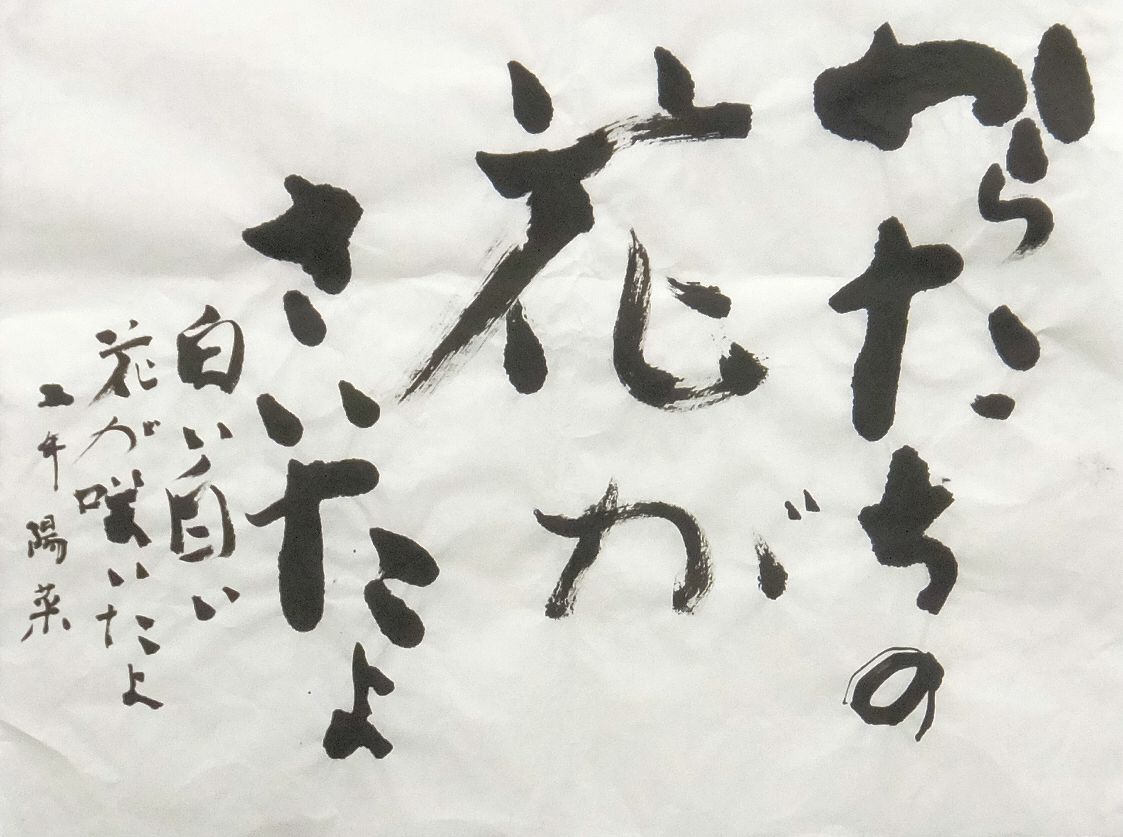 からたちの
花が
さいたよ
白い白い
花が咲いたよ
二年 陽菜